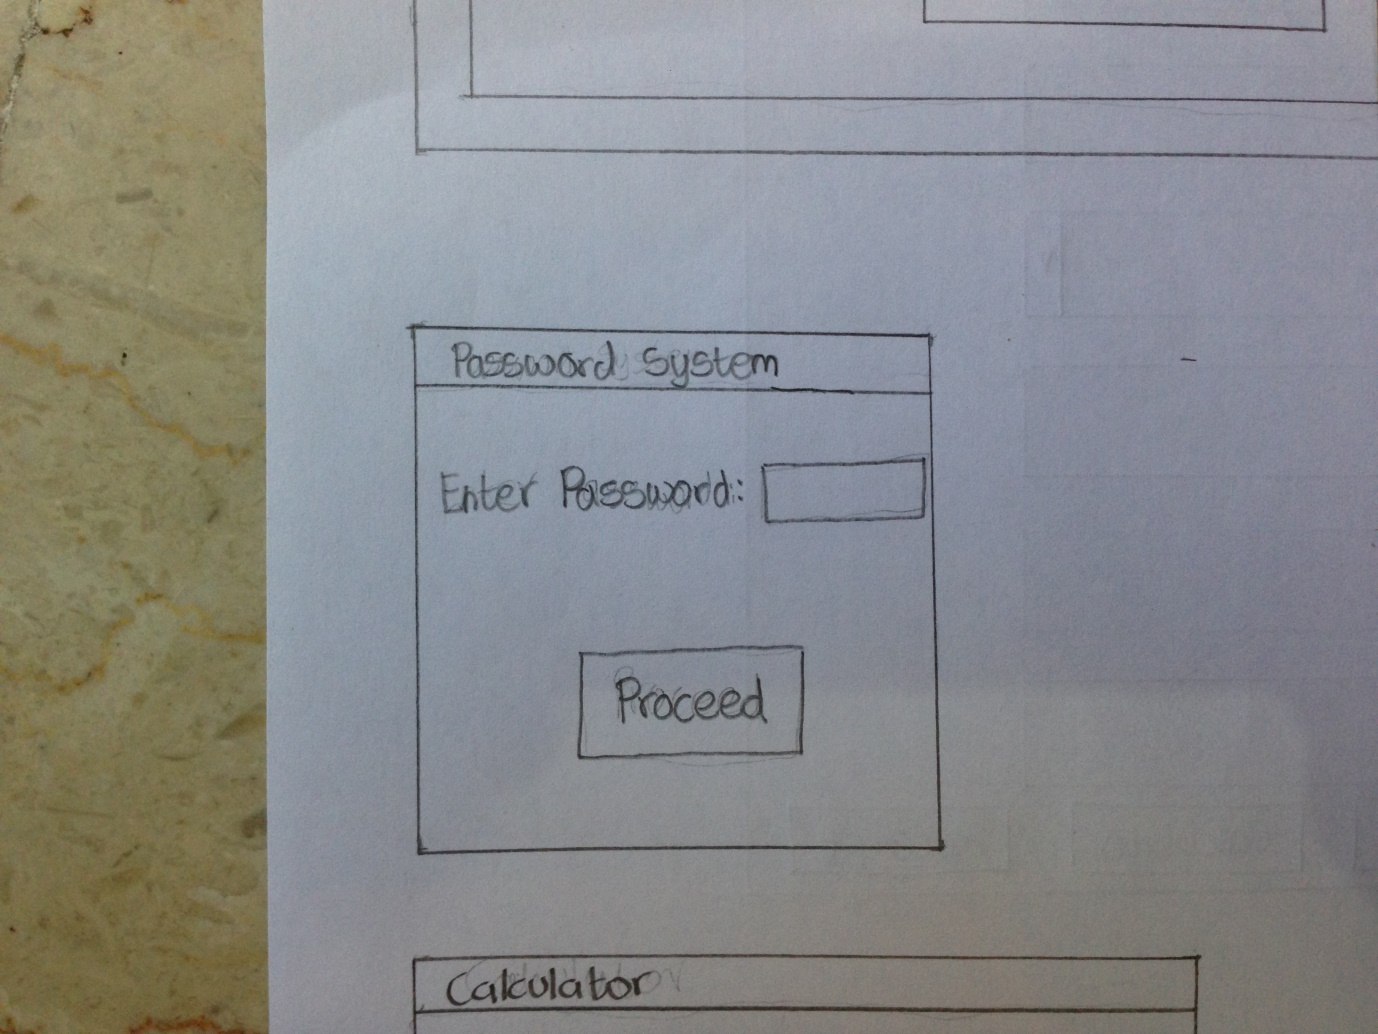 Password System
Enter Password:
Proceed
Calculator